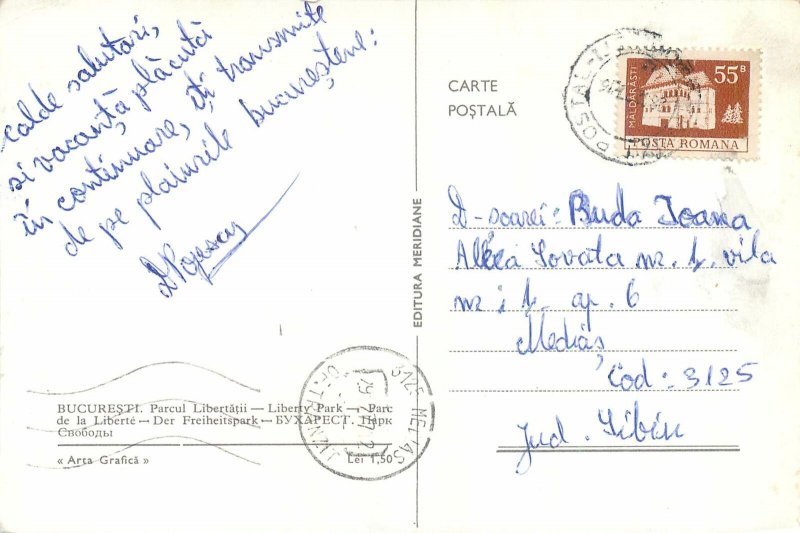 calde salutari,
si vacanță plăcută
în continuare, iți transmite
de pe plaiurile bucureștene:
CARTE
POȘTALĂ
MĂLDĂRĂȘTI
55 B
POSTA ROMANA
D-soarei: Buda Ioana
Aleea Sovata nr. 1. vila
nr. 1 ap. 6
Mediaș
Cod: 3125
Jud. Sibiu
EDITURA MERIDIANE
BUCUREȘTI. Parcul Libertății — Liberty Park — Parc
de la Liberté — Der Freiheitspark — БУХАРЕСТ. Парк
Свободы
« Arta Grafică »
Lei 1,50
3125 MEDIAS